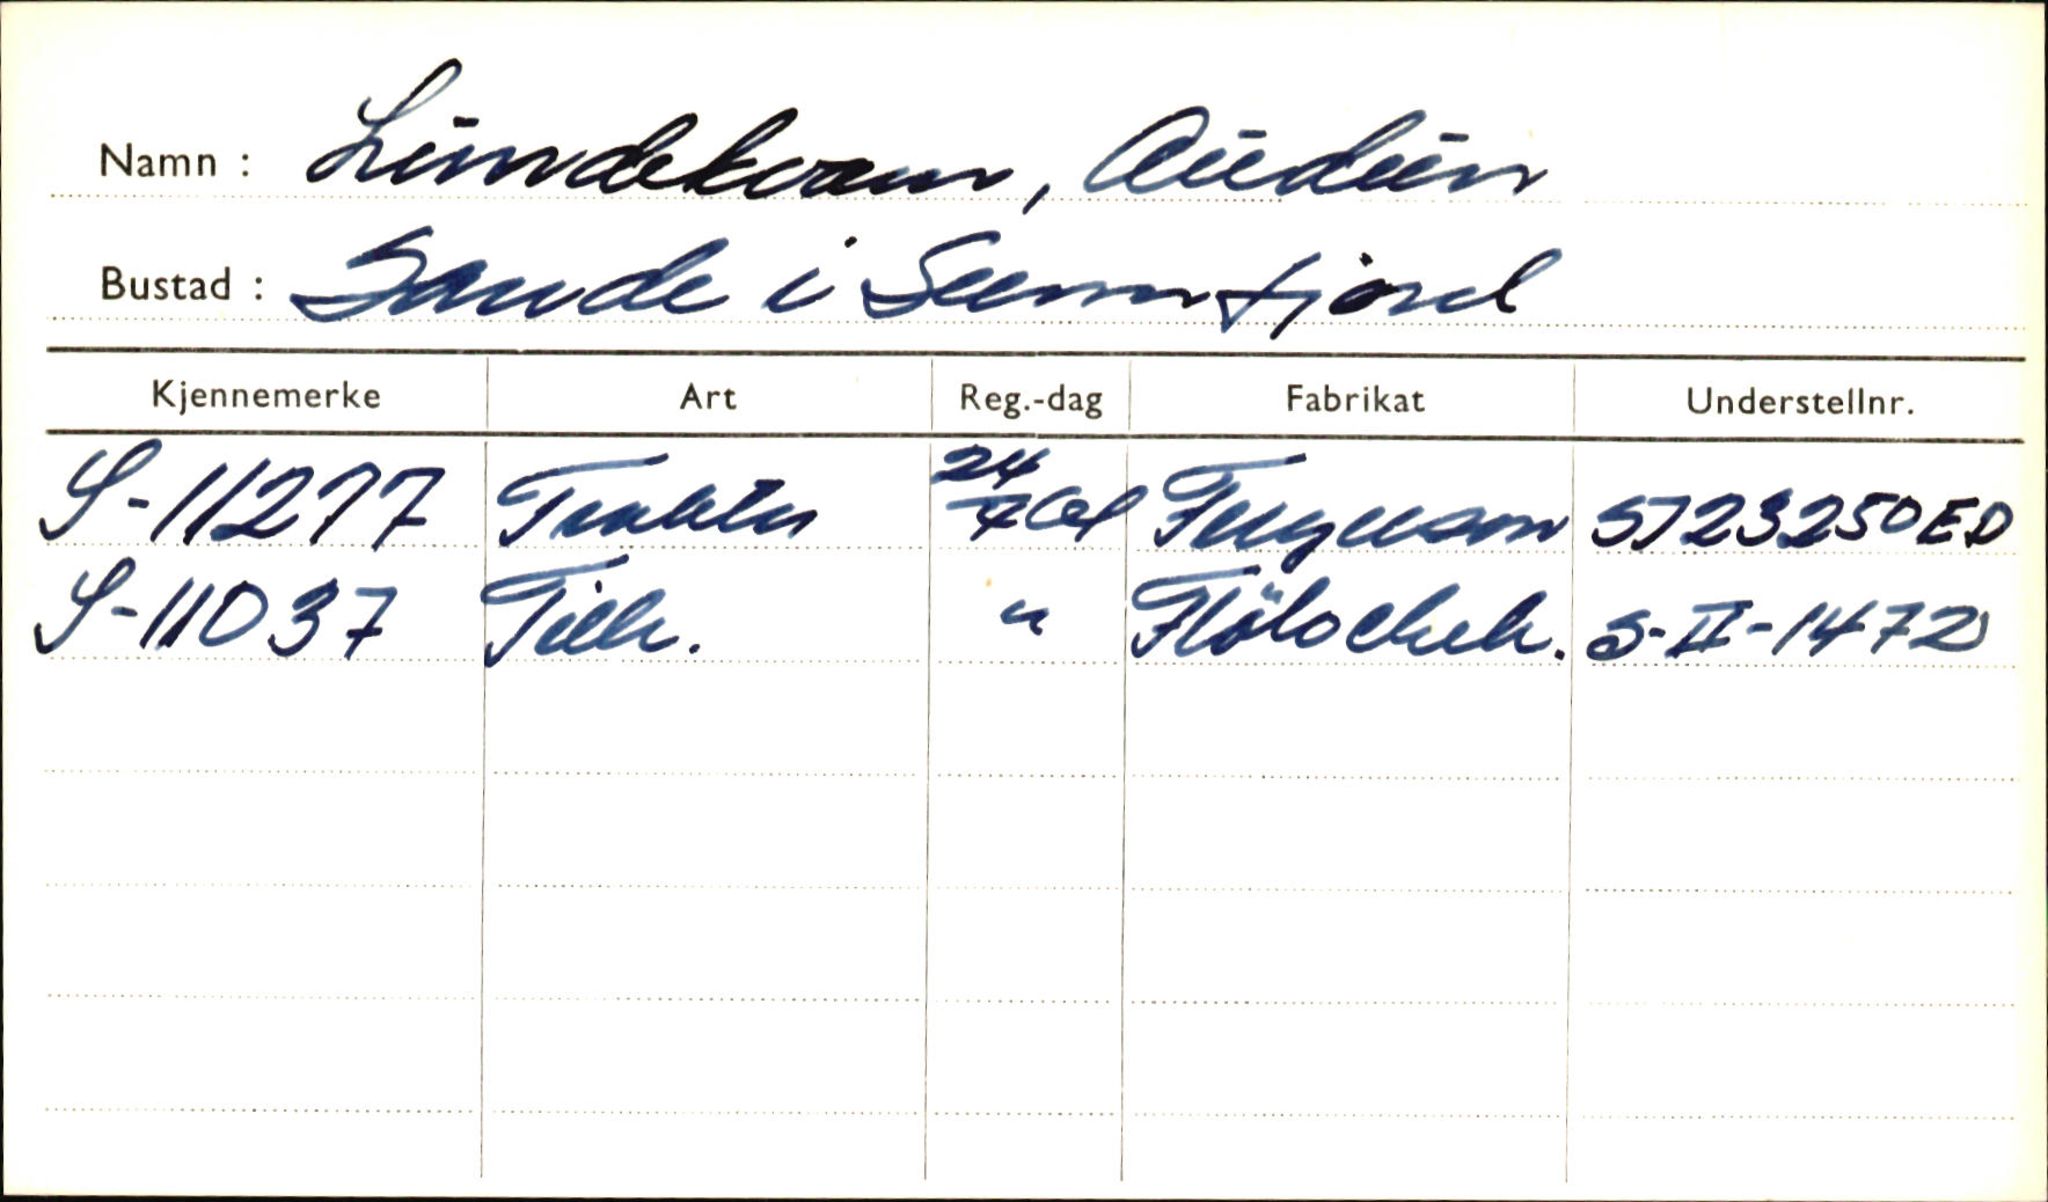 Namn : Lundekvam, Audun
Bustad : Sande i Sunnfjord
Kjennemerke Art Reg.-dag Fabrikat Understellnr.
S-11277 Traktor 24/7 61 Ferguson S723250ED
S-11037 Tilh. " S-II-1472